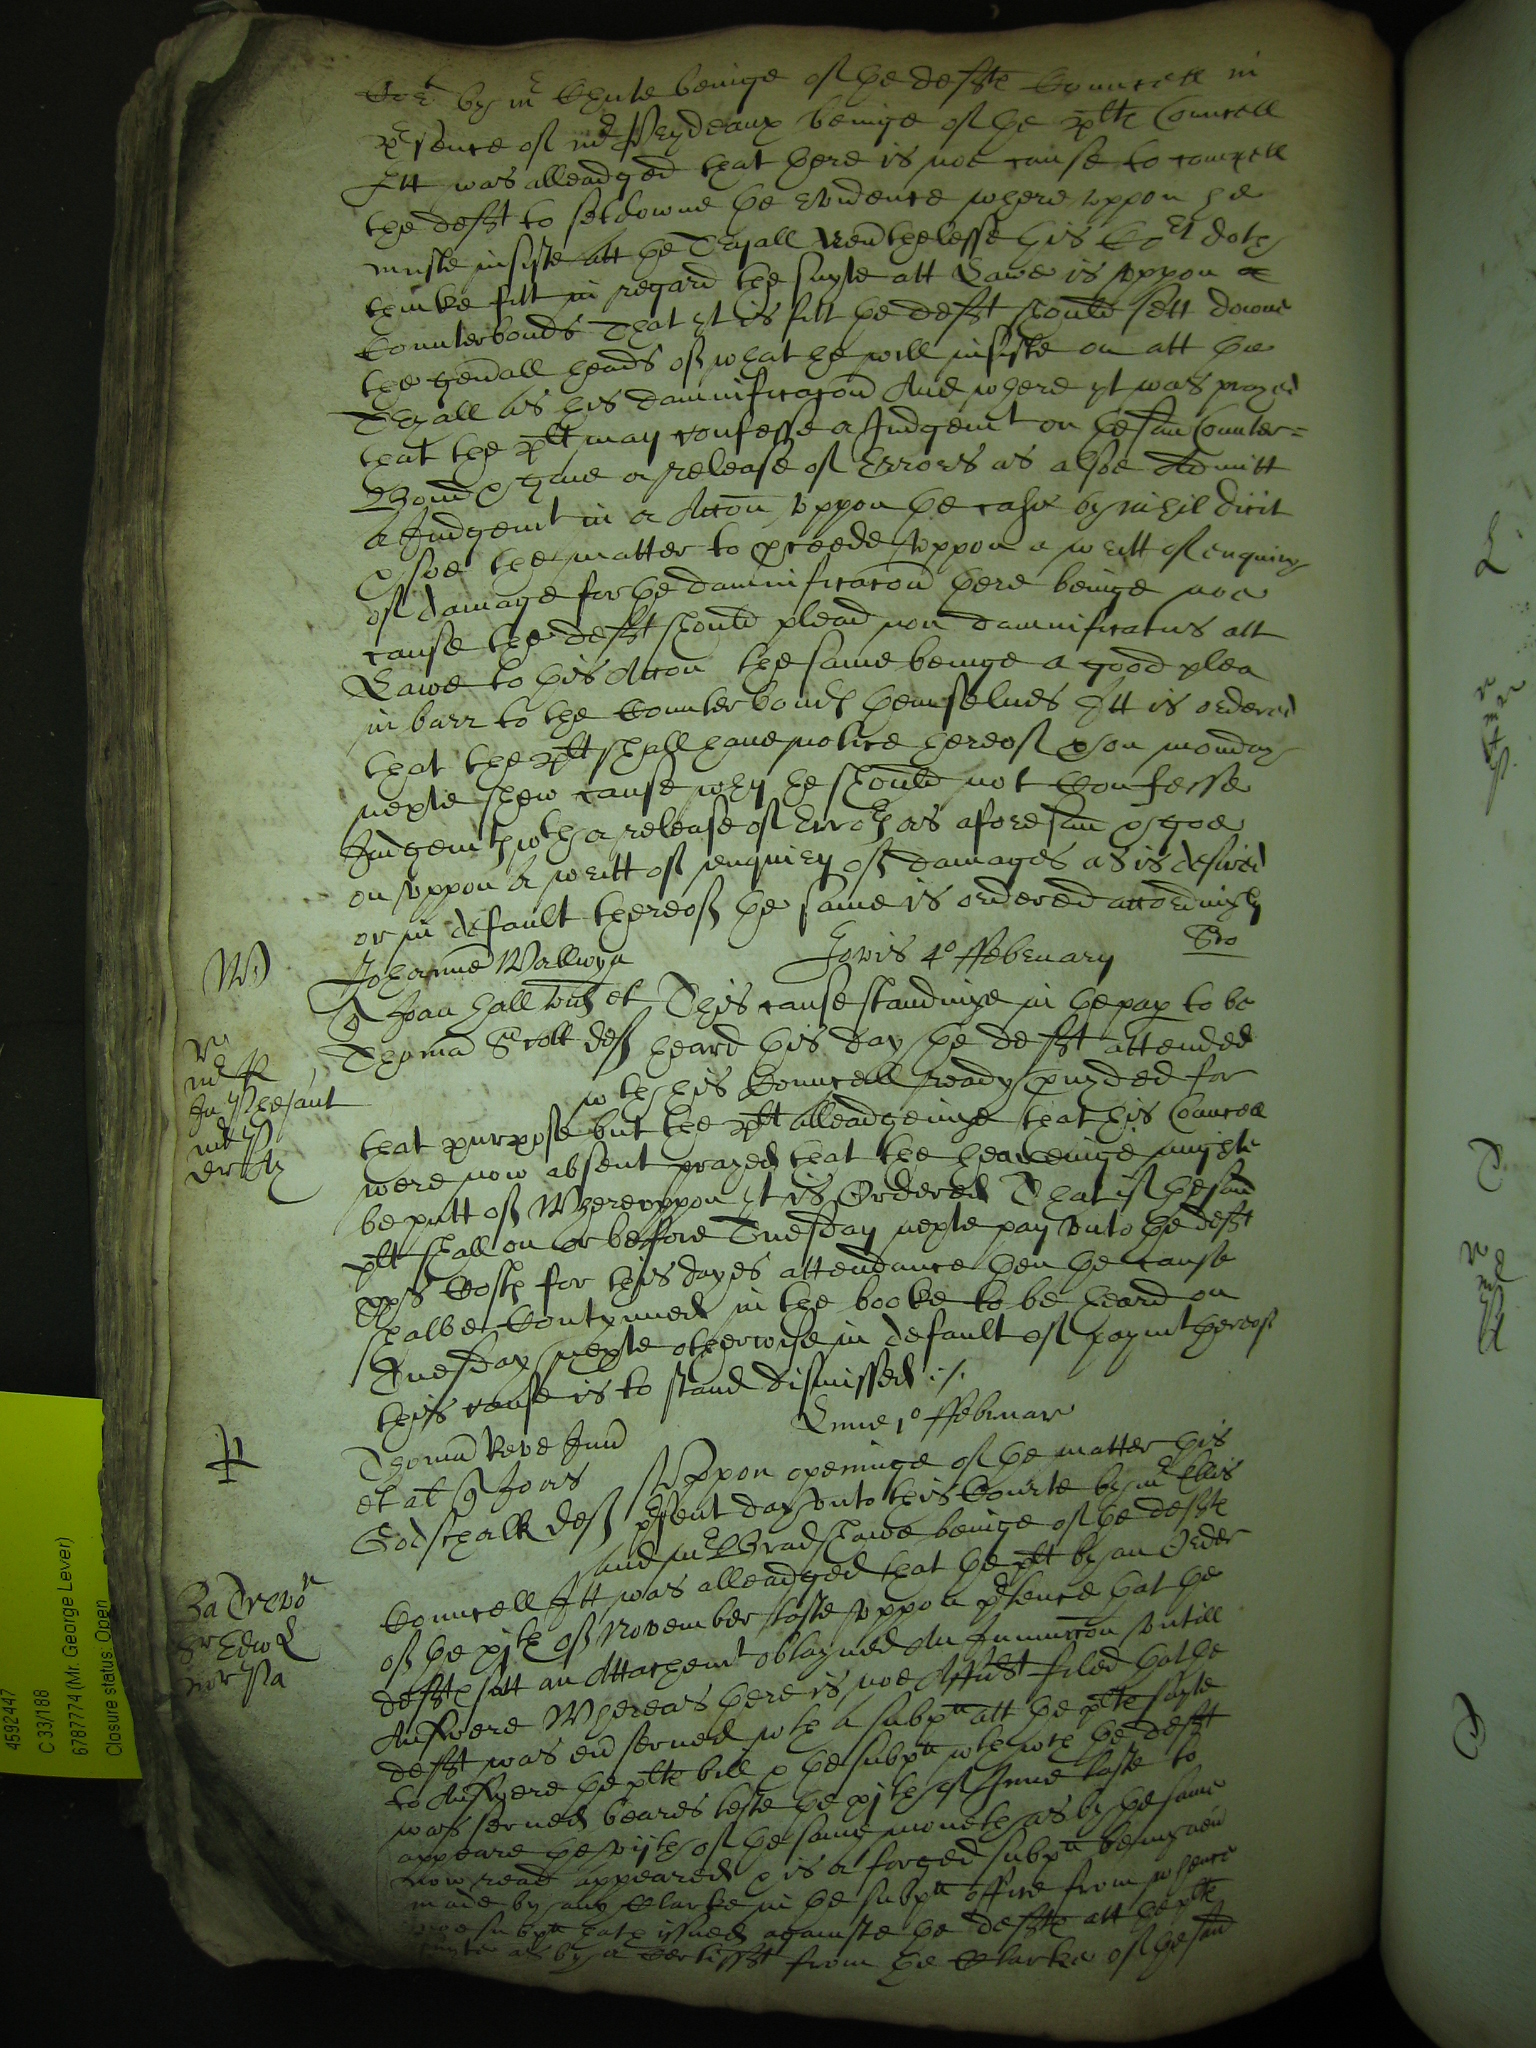 by mr Chute beinge of the defts Councell in
presence of mr Prydeaux beinge of the plts Councell
Itt was alleadged that there is noe cause to compell
the deft to set downe the evidence where uppon he
muste insiste att the Tryall Neverthelesse this Cort doth
thinke fitt in regard the suyte att Lawe is uppon
Counterbonds That yt is fitt the deft should sett downe
the genrall heads of what he will insiste on att the
Tryall as his damnificacon And where yt was prayed
that the plt may confesse a Judgemt on the said Counter=
Bond & gyve a release of Errors as alsoe Admitt
a Judgemt in a Accon uppon the case by nihil dicit
& soe the matter to proceede uppon a writt of enquiry
of damage for the damnificacon there beinge noe
cause the deft should plead non damnificatus att
Lawe to this Accon the same beinge a good plea
in barr to the Counterbonds themselves Itt is ordered
that the plt shall have notice hereof & on monday
nexte shew cause why he should not Confesse
Judgemt with a release of Errors as aforesaid & goe
on uppon a writt of enquiry of damages as is desired
or in default thereof the same is ordered accordingly
Jovis 4o ffebruary
Johanne Wallwyn
Joan Hall vid et This cause standinge in the pap to be
Thoma Scott def heard this day the deft attended
wth his Councell ready pruyded for
that purpose but the plt alleadgeinge that his Councell
were now absent prayed that the heareinge mighte
be putt of Whereuppon yt is Ordered That if the said
plt shall on or before Tuesday nexte pay unto the deft
Costs for this dayes attendance then the cause
shalbe Contynued in the booke to be heard on
Tuesday nexte otherwise in default of paymt thereof
this cause is to stand dismissed ./.
Lune 1o ffebruar
Thoma Reve
et al Joas Uppon openinge of the matter this
Godschalk def present day unto this Courte by mr Ellis
and mr Bradshawe beinge of the defts
Councell Itt was alleadged that the plt by an Order
of the of November laste uppon pretence that the
deft satt an Attachemt obtayned An Iniunccon untill
Answere Whereas there is noe Affidt filed that the
deft was ever served wth a subpa att the plts suyte
to Answere the plts bill & the subpa wth wch the deft
was served beares teste the of June laste to
appeare the of the same moneth as by the same
now read appeared & is a forged subpa beinge never
made by any Clarke in the subpa office from whence
noe subpa hath issued againste the defts att the plts
suyte as by a Certifft from the Clarke of the said
4592447
C 33/188
6787774 (Mr. George Lever)
Closure status: Open